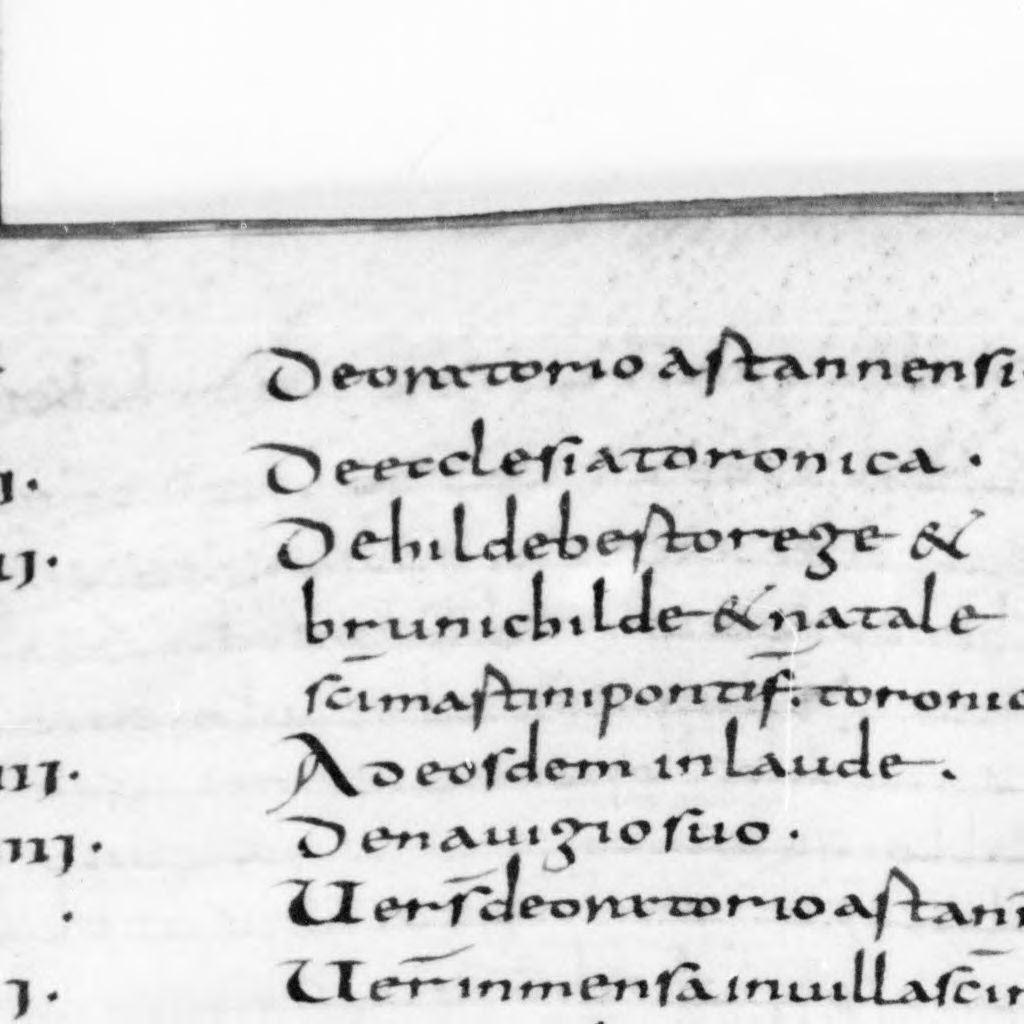 Deoratorio astannensi
I. Deecclesiatoronica.
II. Dehildebestorege &
brunichilde & natale
scimastinipontif. toronic
III. Adeosdem inlaude.
IIII. Denauigiosuo.
. Uersdeoratorio astann
I. Uerinmensa inuillascim